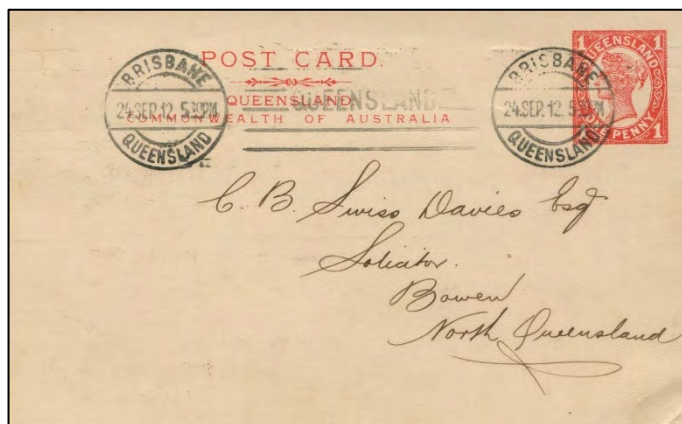 POST CARD.
QUEENSLAND
COMMONWEALTH OF AUSTRALIA
BRISBANE
24.SEP.12. 5 30PM
QUEENSLAND
QUEENSLAND.
BRISBANE
24.SEP.12. 5 30PM
QUEENSLAND
1 QUEENSLAND 1
1 ONE PENNY 1
C. B. Swiss Davies Esq
Solicitor.
Bowen
North Queensland